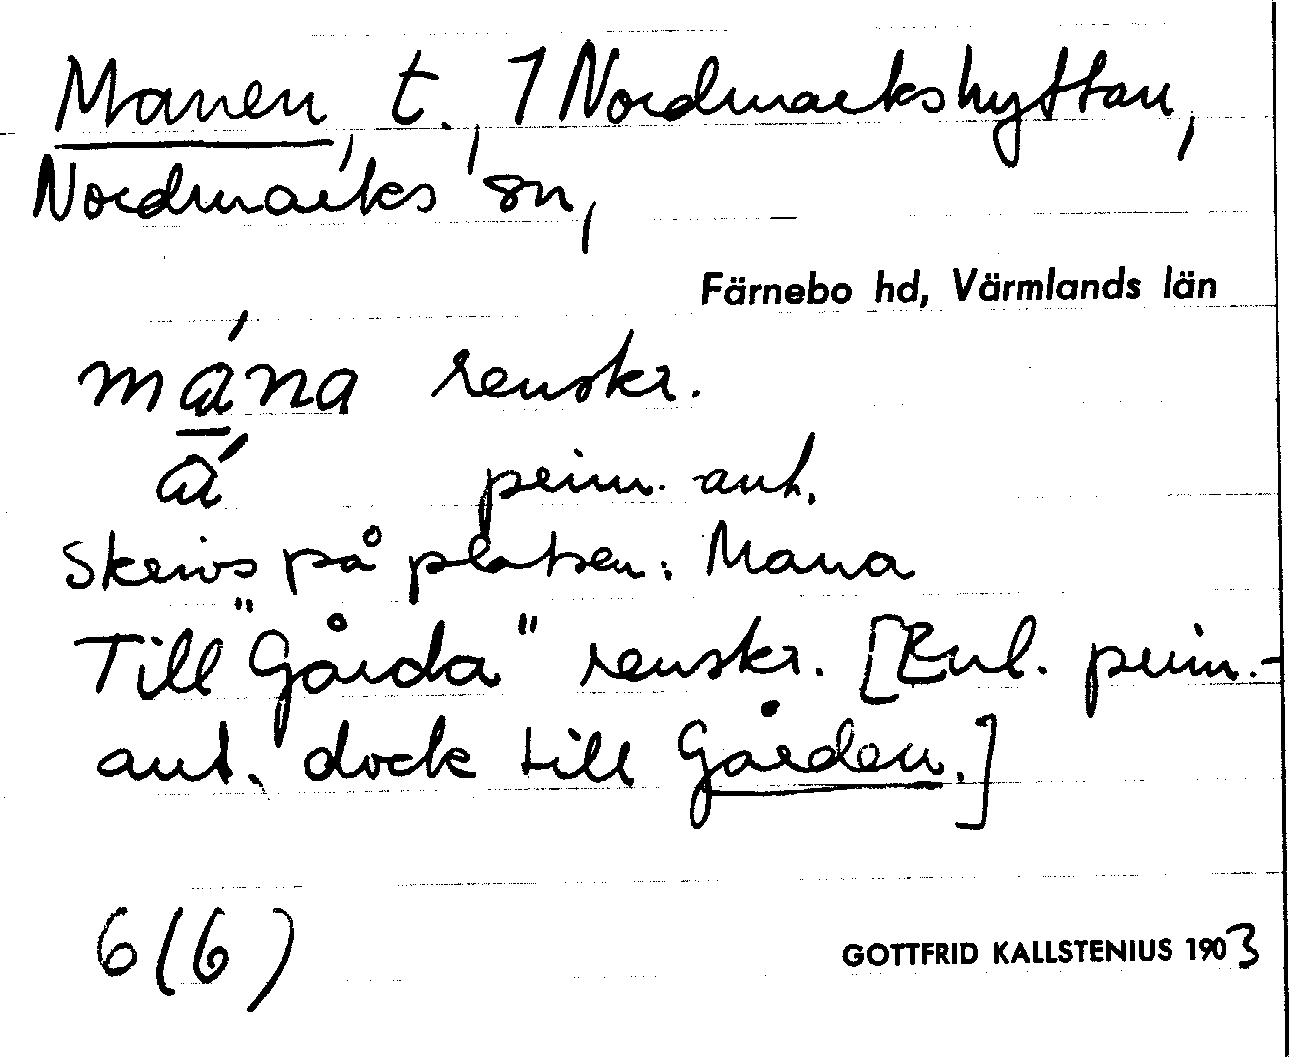 Manen, t., 1 Nordmarkshyttan,
Nordmarks sn,
Färnebo hd, Värmlands län
mána renskr.
á prim.-ant.
Skrivs på platsen: Mana
Till "Gårda" renskr. [Enl. prim.-
ant. dock till Gården.]
6(6)
GOTTFRID KALLSTENIUS 1903